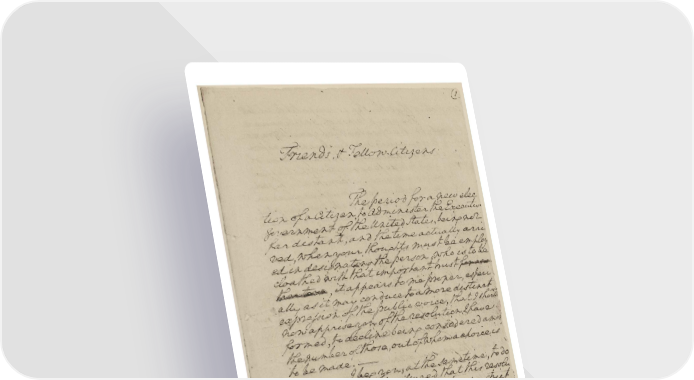 1
Friends, & Fellow-Citizens
The period for a new elec
tion of a Citizen to Administer the Executive
Government of the United States, being not
very distant, and the time actually arri
ved, when your thoughts must be employ
ed in designating the person, who is to be
cloathed with that important trust
it appears to me proper, especi
ally as it may conduce to a more distinct
expression of the public voice, that I should
now apprise you of the resolution I have
formed, to decline being considered among
the number of those, out of whom a choice is
to be made.
I beg you, at the same time, to do
that this resolu